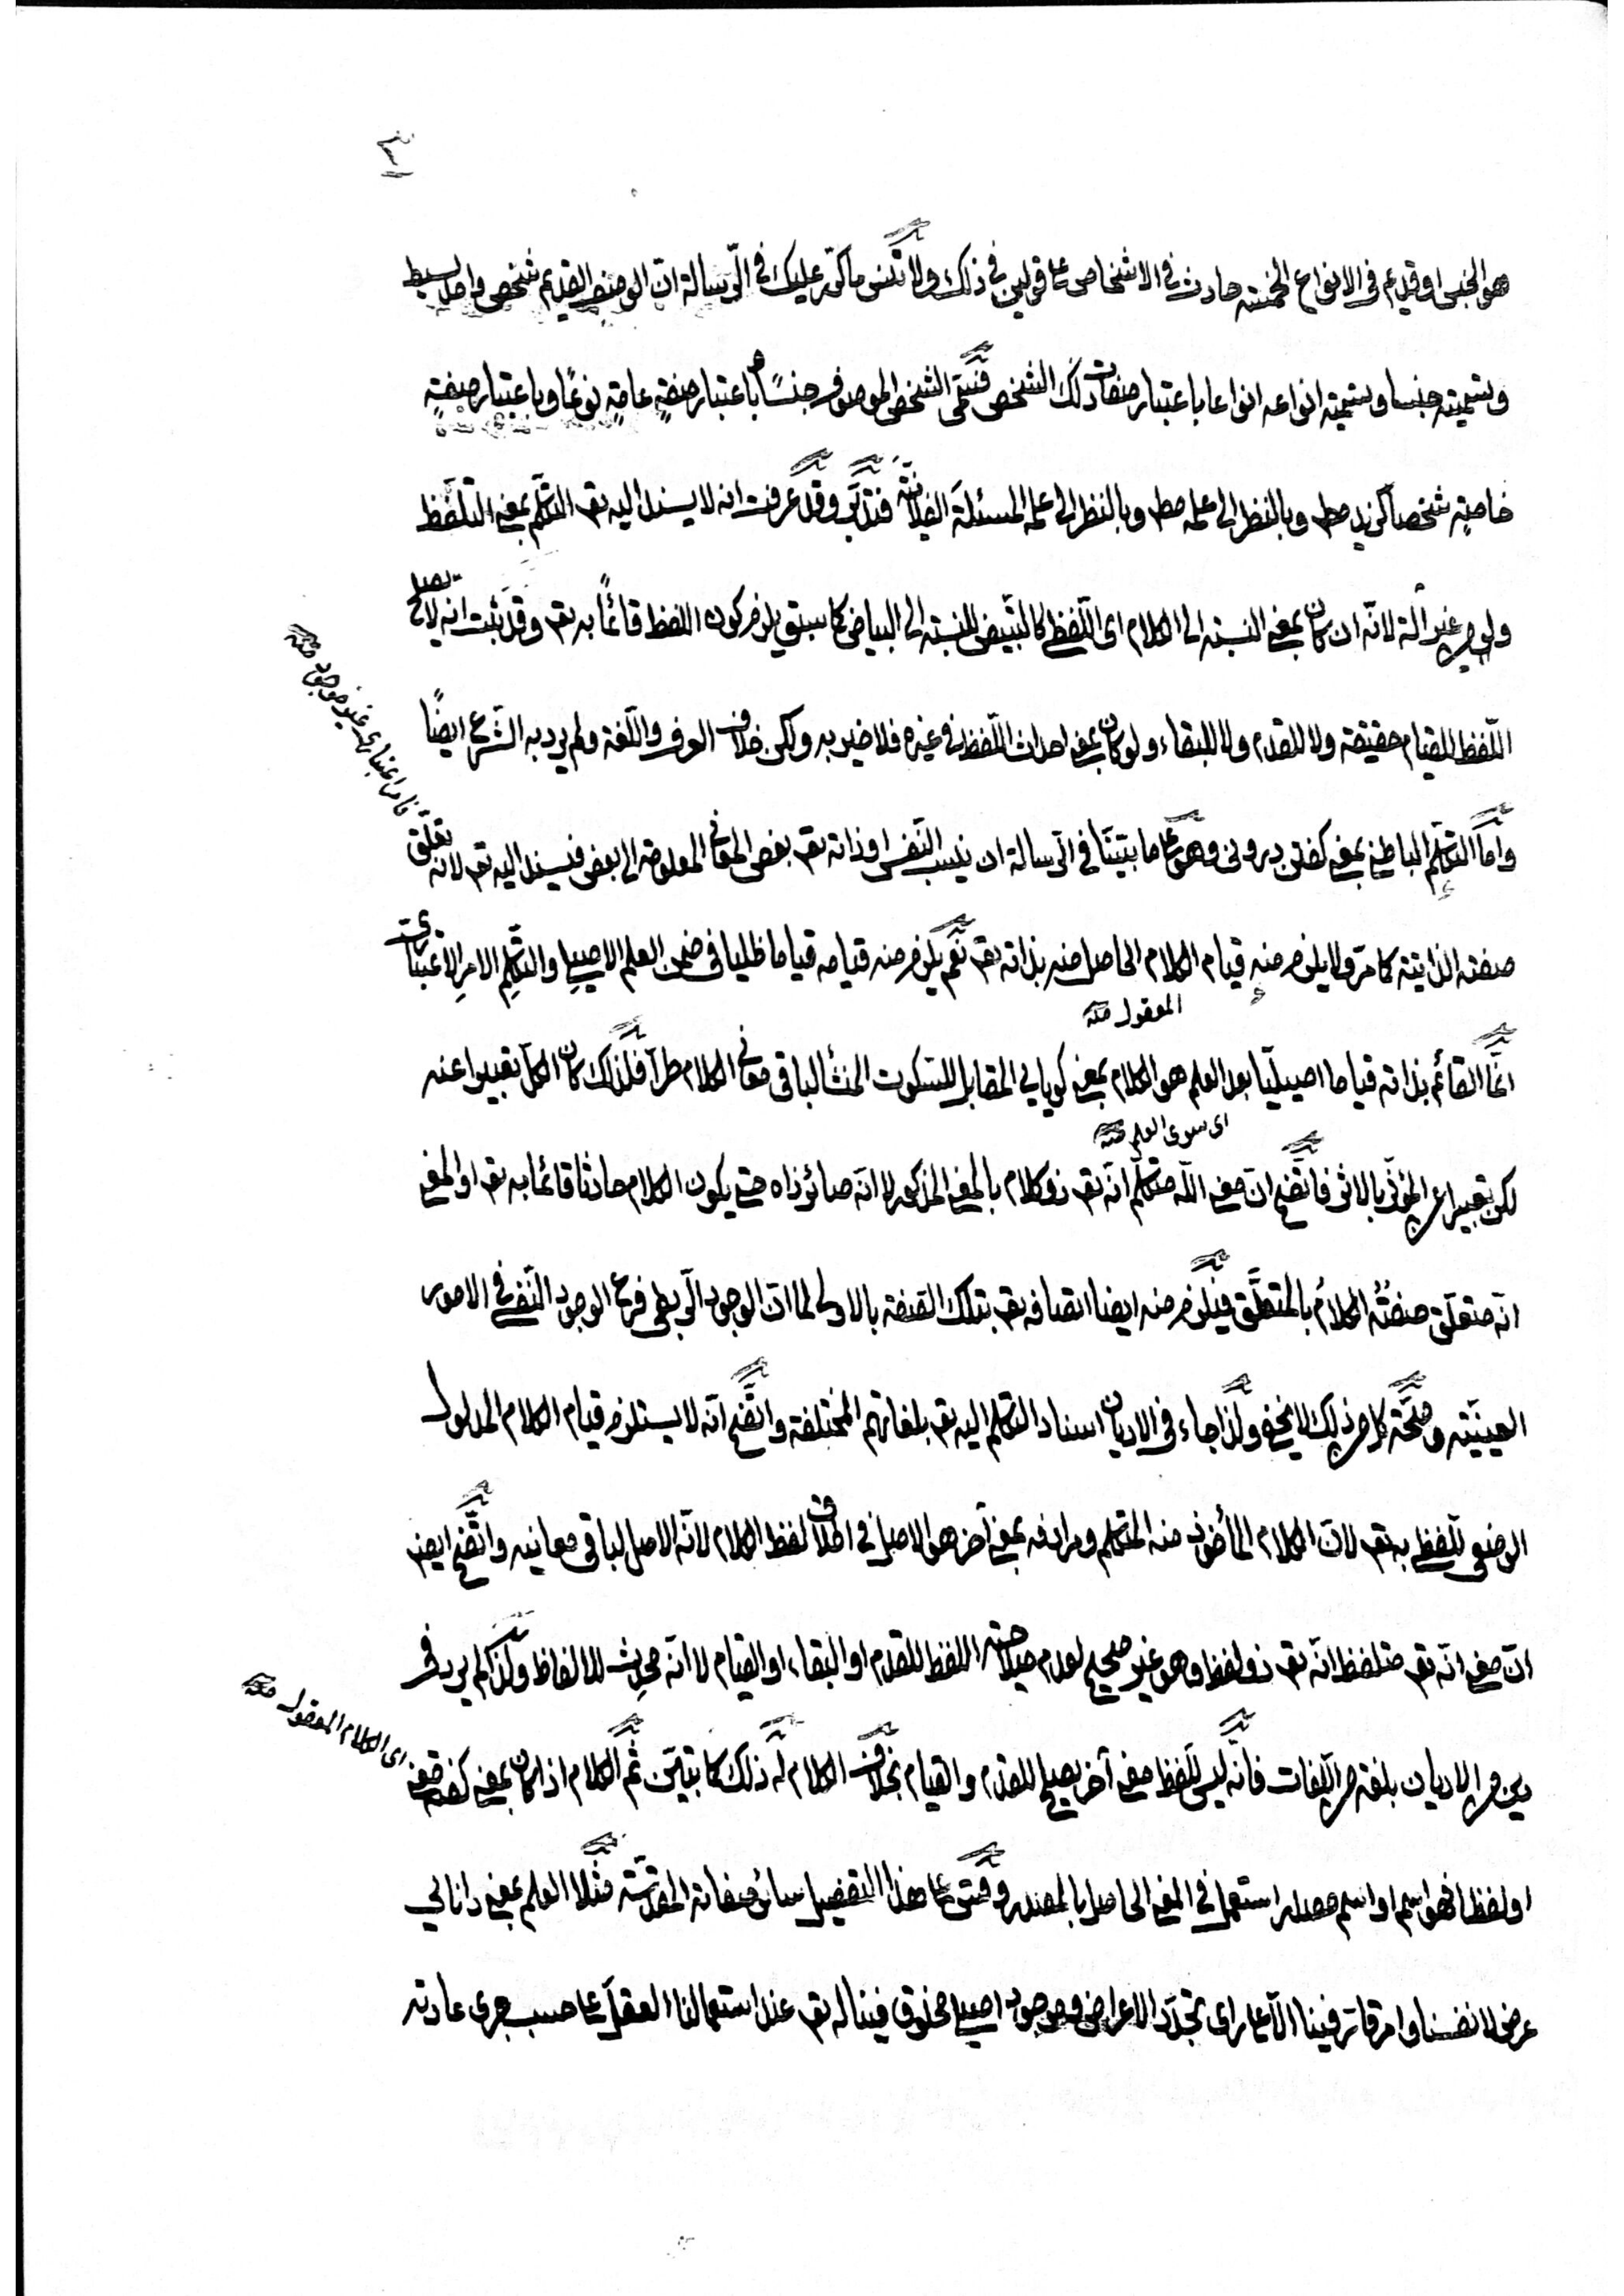 ٣
هو الجنس او قديم فى الانواع الخمسة حادث فى الاشخاص على قولين فى ذلك ولا تنس ما كرّر عليك فى الرّسالة انّ الوصف القديم شخص واحد بسيط
وتسميته جنسا وتسمية انواعه انواعا باعتبار صفات ذلك الشخص فتسمّى الشخص الموصوف جنسًا باعتبار صفةٍ عامةٍ نوعًا وباعتبار صفةٍ
خاصةٍ شخصا كزيد مطـ وبالنظر الى علمه مطـ وبالنظر الى علمه المسئلةَ الفلانيّة فتدبّر وقد عرفت انه لا يسند اليه تعـ التكلّم بمعنى التلفّظ
ولو من غير آلة لانّه ان كان بمعنى النسبة الى الكلام اى اللّفظ كالتبييض للنسبة الى البياض كما سبق يلزم كون اللفظ قائمًا به تعـ وقد ثبت انه لا يصلح
اللّفظ للقيام حقيقة ولا للقدم ولا للبقاء ولو كان بمعنى احداث اللّفظ فى غيره فلا ضير به ولكن خلاف العرف واللّغة ولم يرد به الشّرع ايضًا
وامّا التكلّم الباطنى بمعنى كفتن درونى وهو على ما بيّنّا فى الرّسالة ان ينسب النّفس او ذاته تعـ بعض المعانى المعلومة الى بعض فيسند اليه تعـ لانه تعلّق
صفته الذاتية كما مرّ ولا يلزم منه قيام الكلام الحاصل منه بذاته تعـ نعم يلزم منه قيامه قياما ظليا فى ضمن العلم الاصيلى والتكلّمِ الامرِ الاعتبارى
المعقول منه
انّما القائم بذاته قياما اصيليّا بعد العلم هو الكلام بمعنى كويايى المقابل للسّكوت المنشأ لباقى معانى الكلام طرّا فلذلك كان الكلّ تعبيرا عنه
اى سوى العلم منه
لكن تعبيرا عن المؤثّر بالاثر فاتّضح انّ معنى اللّه متكلّم انّه تعـ ذو كلام بالمعنى المذكور لا انّه صائر ذاه حتى يكون الكلام حادثا قائما به تعـ او المعنى
انّه متعلّق صفتُه الكلامُ بالمتعلَّق فيلزم منه ايضا اتصافه تعـ بتلك الصّفة بالاولى لما انّ الوجود الرّبطى فرع الوجود النّفسى فى الامور
العينيّة وصحّة كل من ذلك لا يخفى ولذا جاء فى الاديان اسناد التكلم اليه تعـ بلغاتهم المختلفة واتّضح انّه لا يستلزم قيام الكلام المدلول
الوضعى للّفظ به تعـ لانّ الكلام المأخوذ منه المتكلم ومرادفه بمعنى آخر هو الاصل فى اطلاق لفظ الكلام لانّه الاصل لباقى معانيه واتّضح ايضـ
انّ معنى انّه تعـ متلفظ انّه تعـ ذو لفظ وهو غير صحيح لعدم صلاحية اللفظ للقدم او البقاء او القيام لا انّه محدِث للالفاظ ولذا لم يرد فى
دين من الاديان بلغة من اللّغات فانّه ليس للّفظ معنى آخر يصلح للقدم والقيام بخلاف الكلام له ذلك كما تبيّن ثمّ الكلام اذا كان بمعنى كفته معنى
او لفظا فهو اسم او اسم مصدر استعمل فى المعنى الحاصل بالمصدر وقس على هذا التفصيل سائر صفاته المقدّسة مثلا العلم بمعنى دانايى
عرض لانفسنا وامر قارّ فينا الّا على راى تجدّد الاعراض وموجود اصيلى مخلوق فينا له تعـ عند استعمالنا العقل على حسب جرى عادته
امر اعتبارى غير موجود منه
اى الكلام المعقول منه